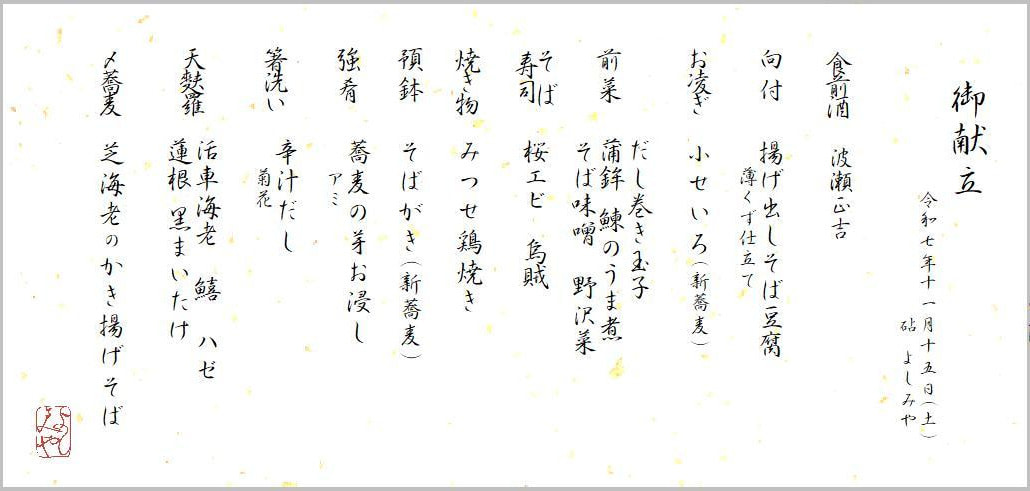 御献立
令和七年十一月十五日(土)
砧 よしみや
食前酒 波瀬正吉
向付 揚げ出しそば豆腐
薄くず仕立て
お凌ぎ 小せいろ(新蕎麦)
前菜 だし巻き玉子
蒲鉾 鰊のうま煮
そば味噌 野沢菜
そば寿司 桜エビ 烏賊
焼き物 みつせ鶏焼き
預鉢 そばがき(新蕎麦)
強肴 蕎麦の芽お浸し
アミ
箸洗い 辛汁だし
菊花
天麩羅 活車海老 鱚 ハゼ
蓮根 黒まいたけ
〆蕎麦 芝海老のかき揚げそば